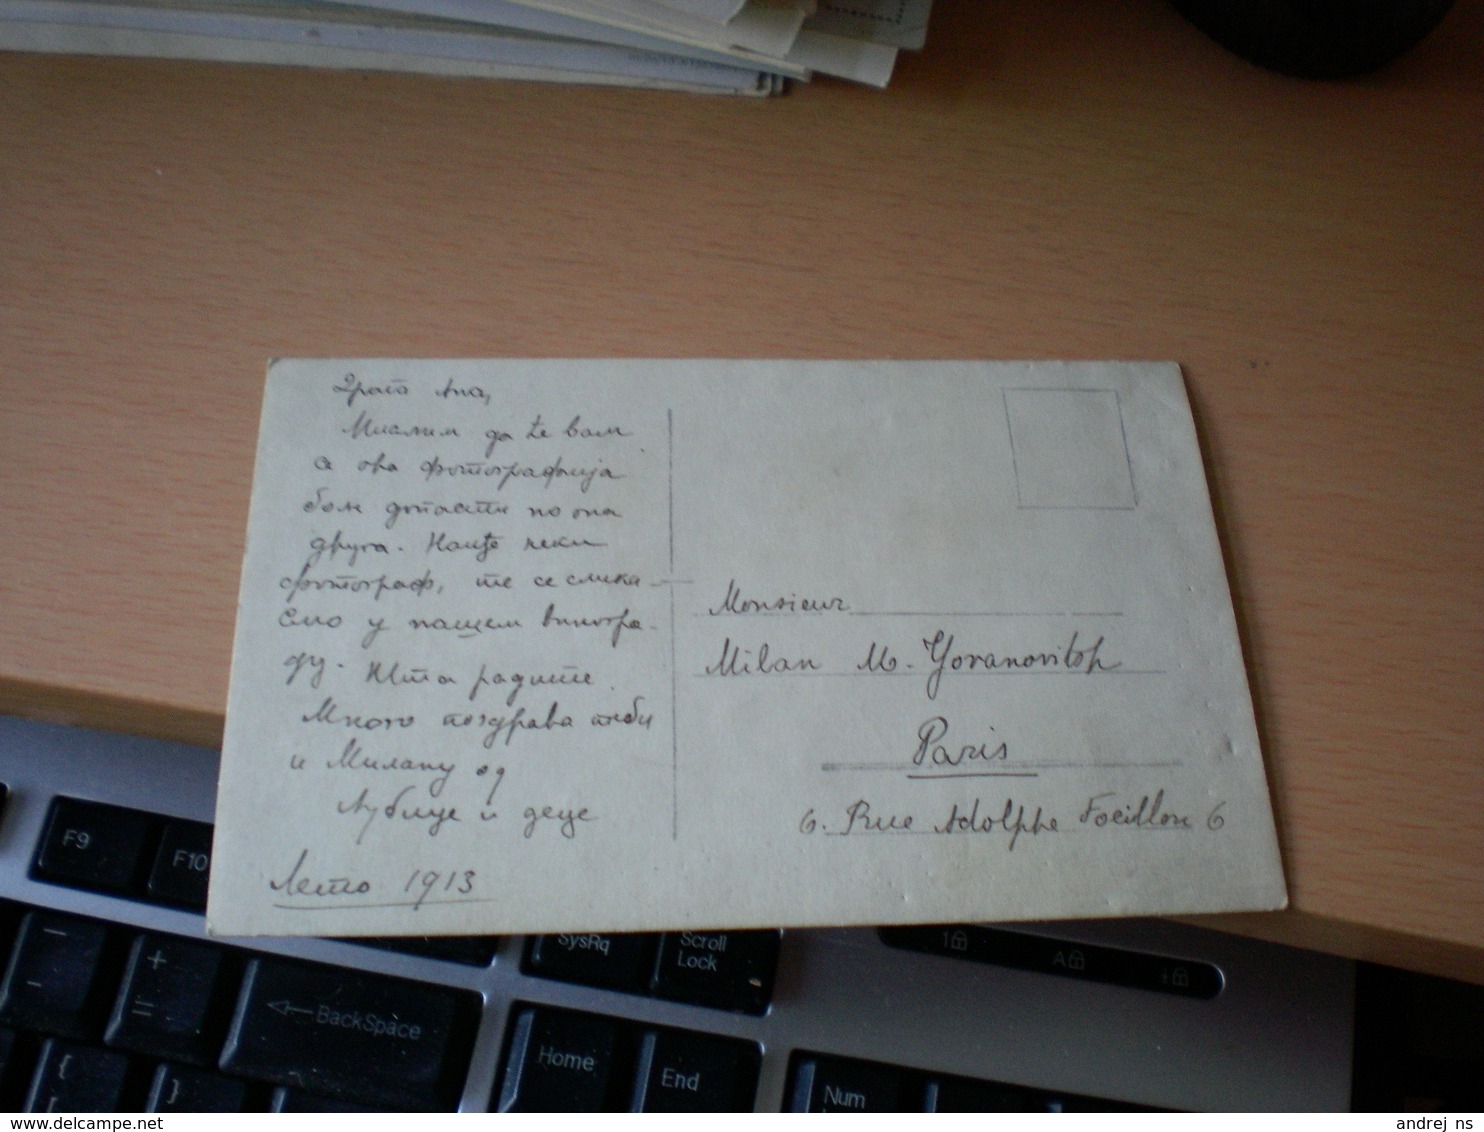 Драга Ана,
Мислим да ће вам
се ова фотографија
боље допасти но она
друга. Наиђе неки
фотограф, те се слика
смо у нашем виногра-
ду. Шта радите.
Много поздрава теби
и Милану од
Љубице и деце
Лето 1913
Monsieur
Milan M. Yovanovitch
Paris
6. Rue Adolphe Focillon 6
F9
F10
SysRq
Scroll
Lock
1
A
BackSpace
Home
End
Num
+
=
-
{
}
delcampe.net
andrej_ns